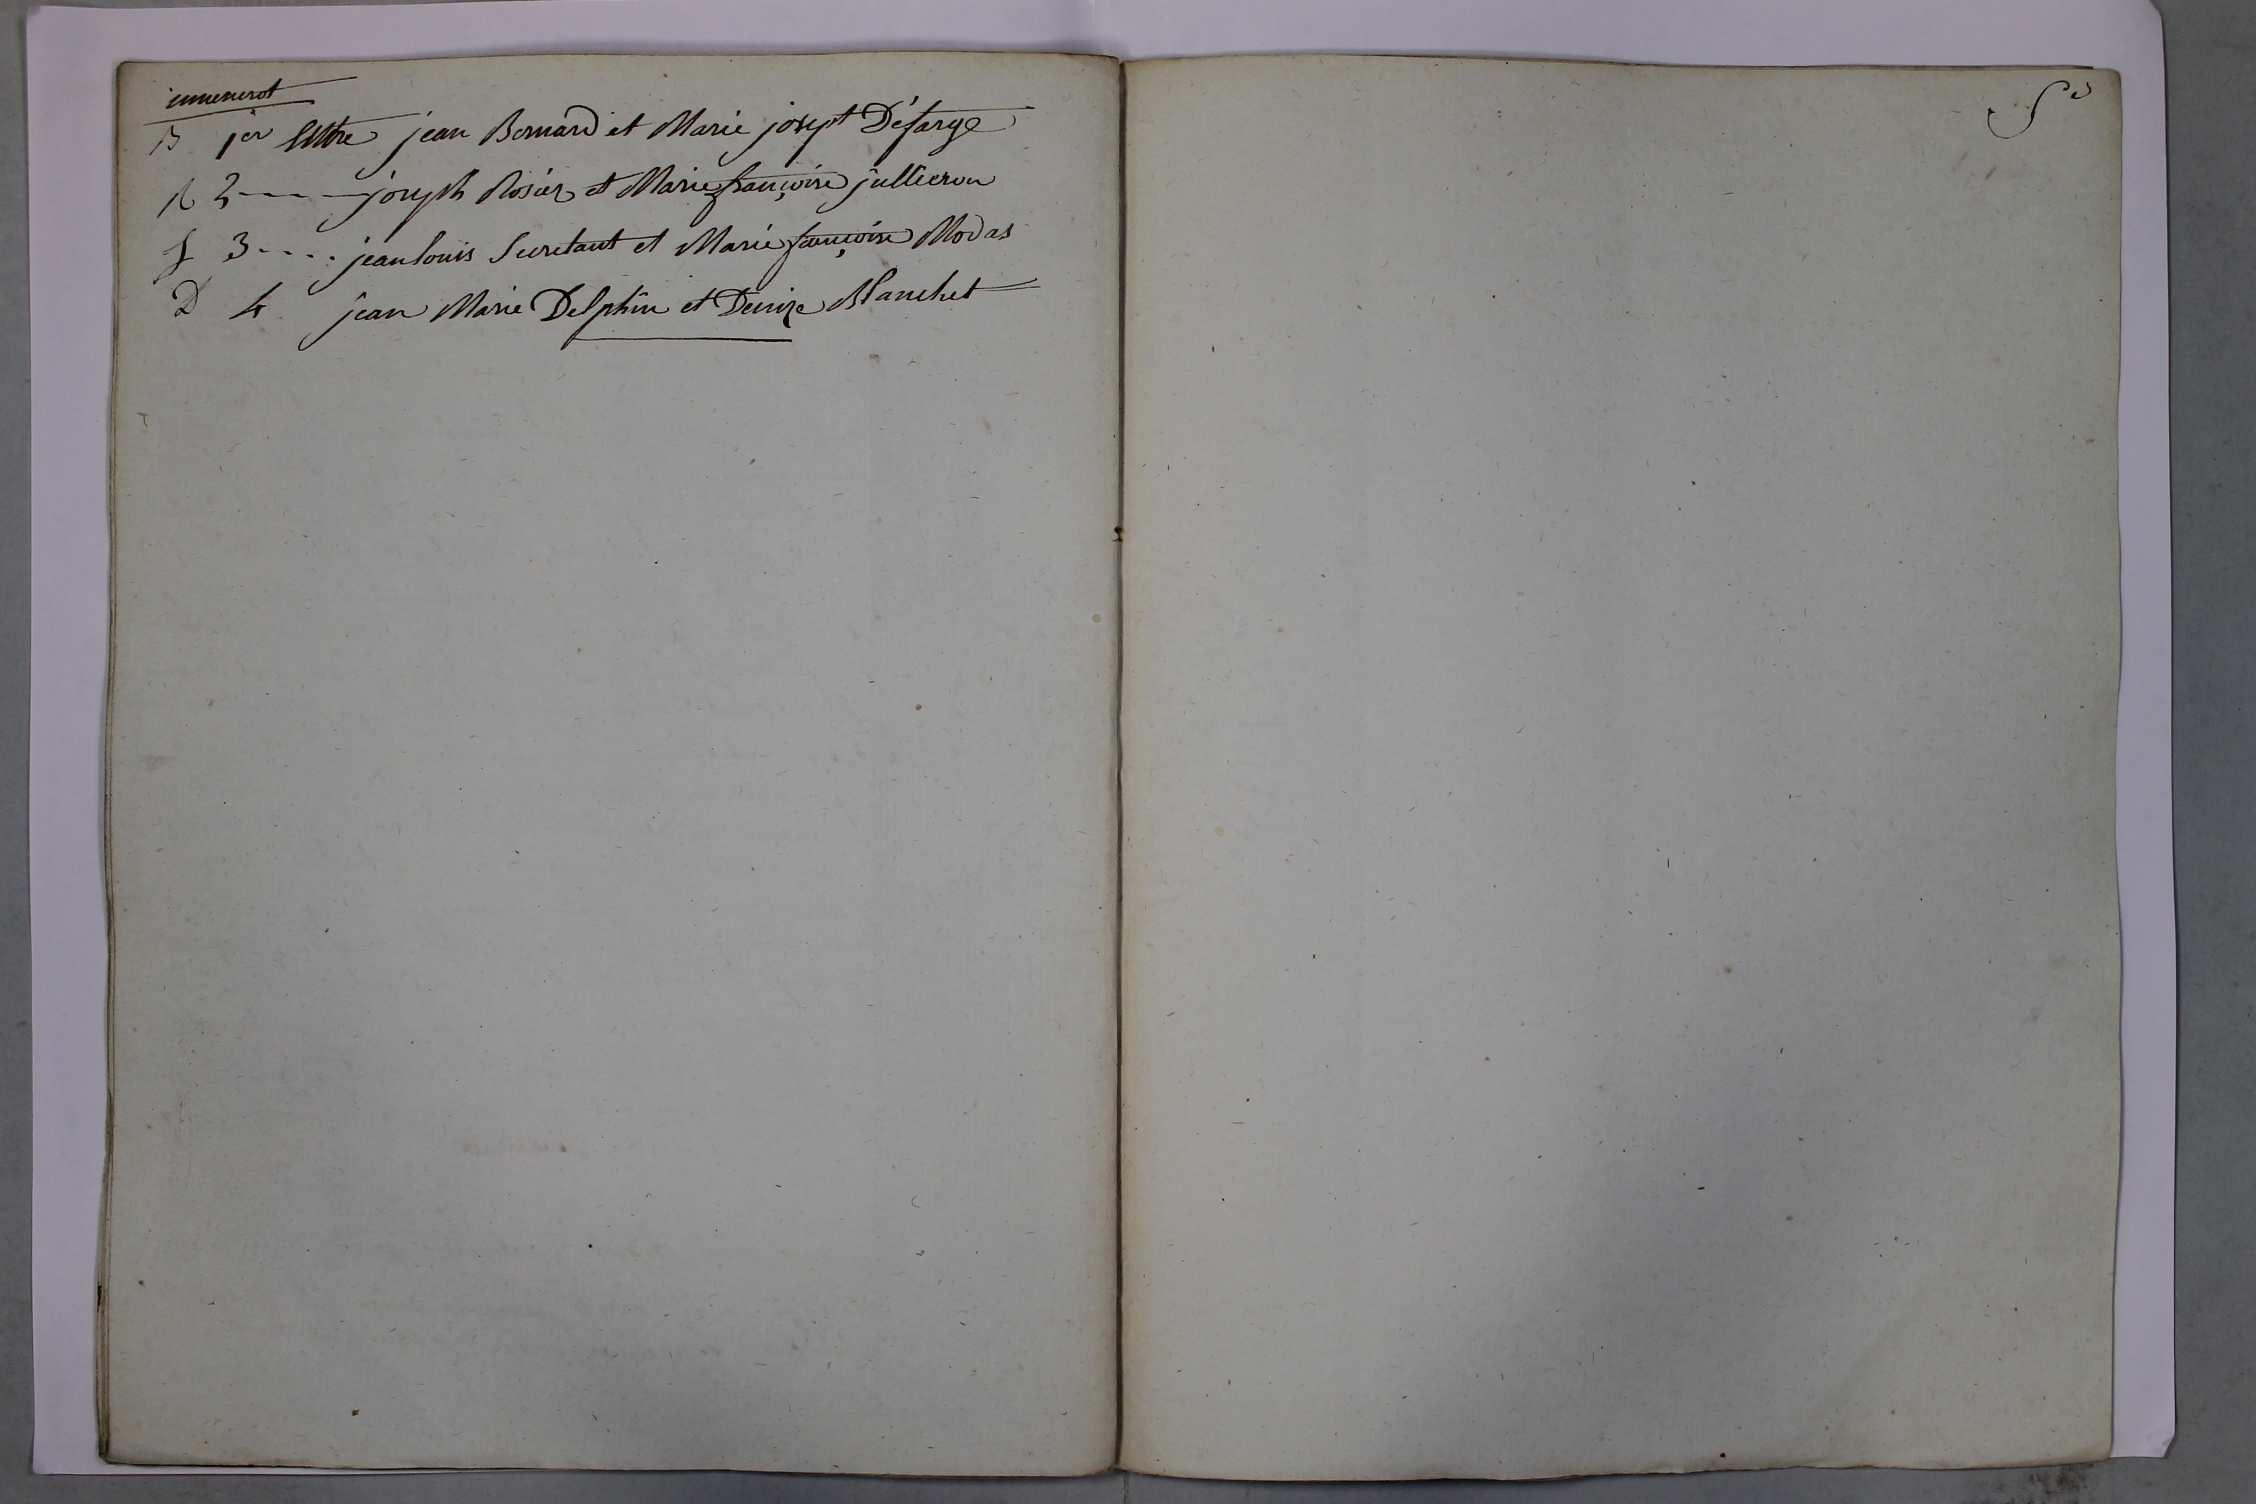 B 1er lettre jean Bernard et Marie josept Défarge
R 2 - - - - - joseph Rosier et Marie françoise jullieron
S 3 - - - - jean louis Secretant et Marie françoise Modas
D 4 jean Marie Delphin et Denize Blanchet